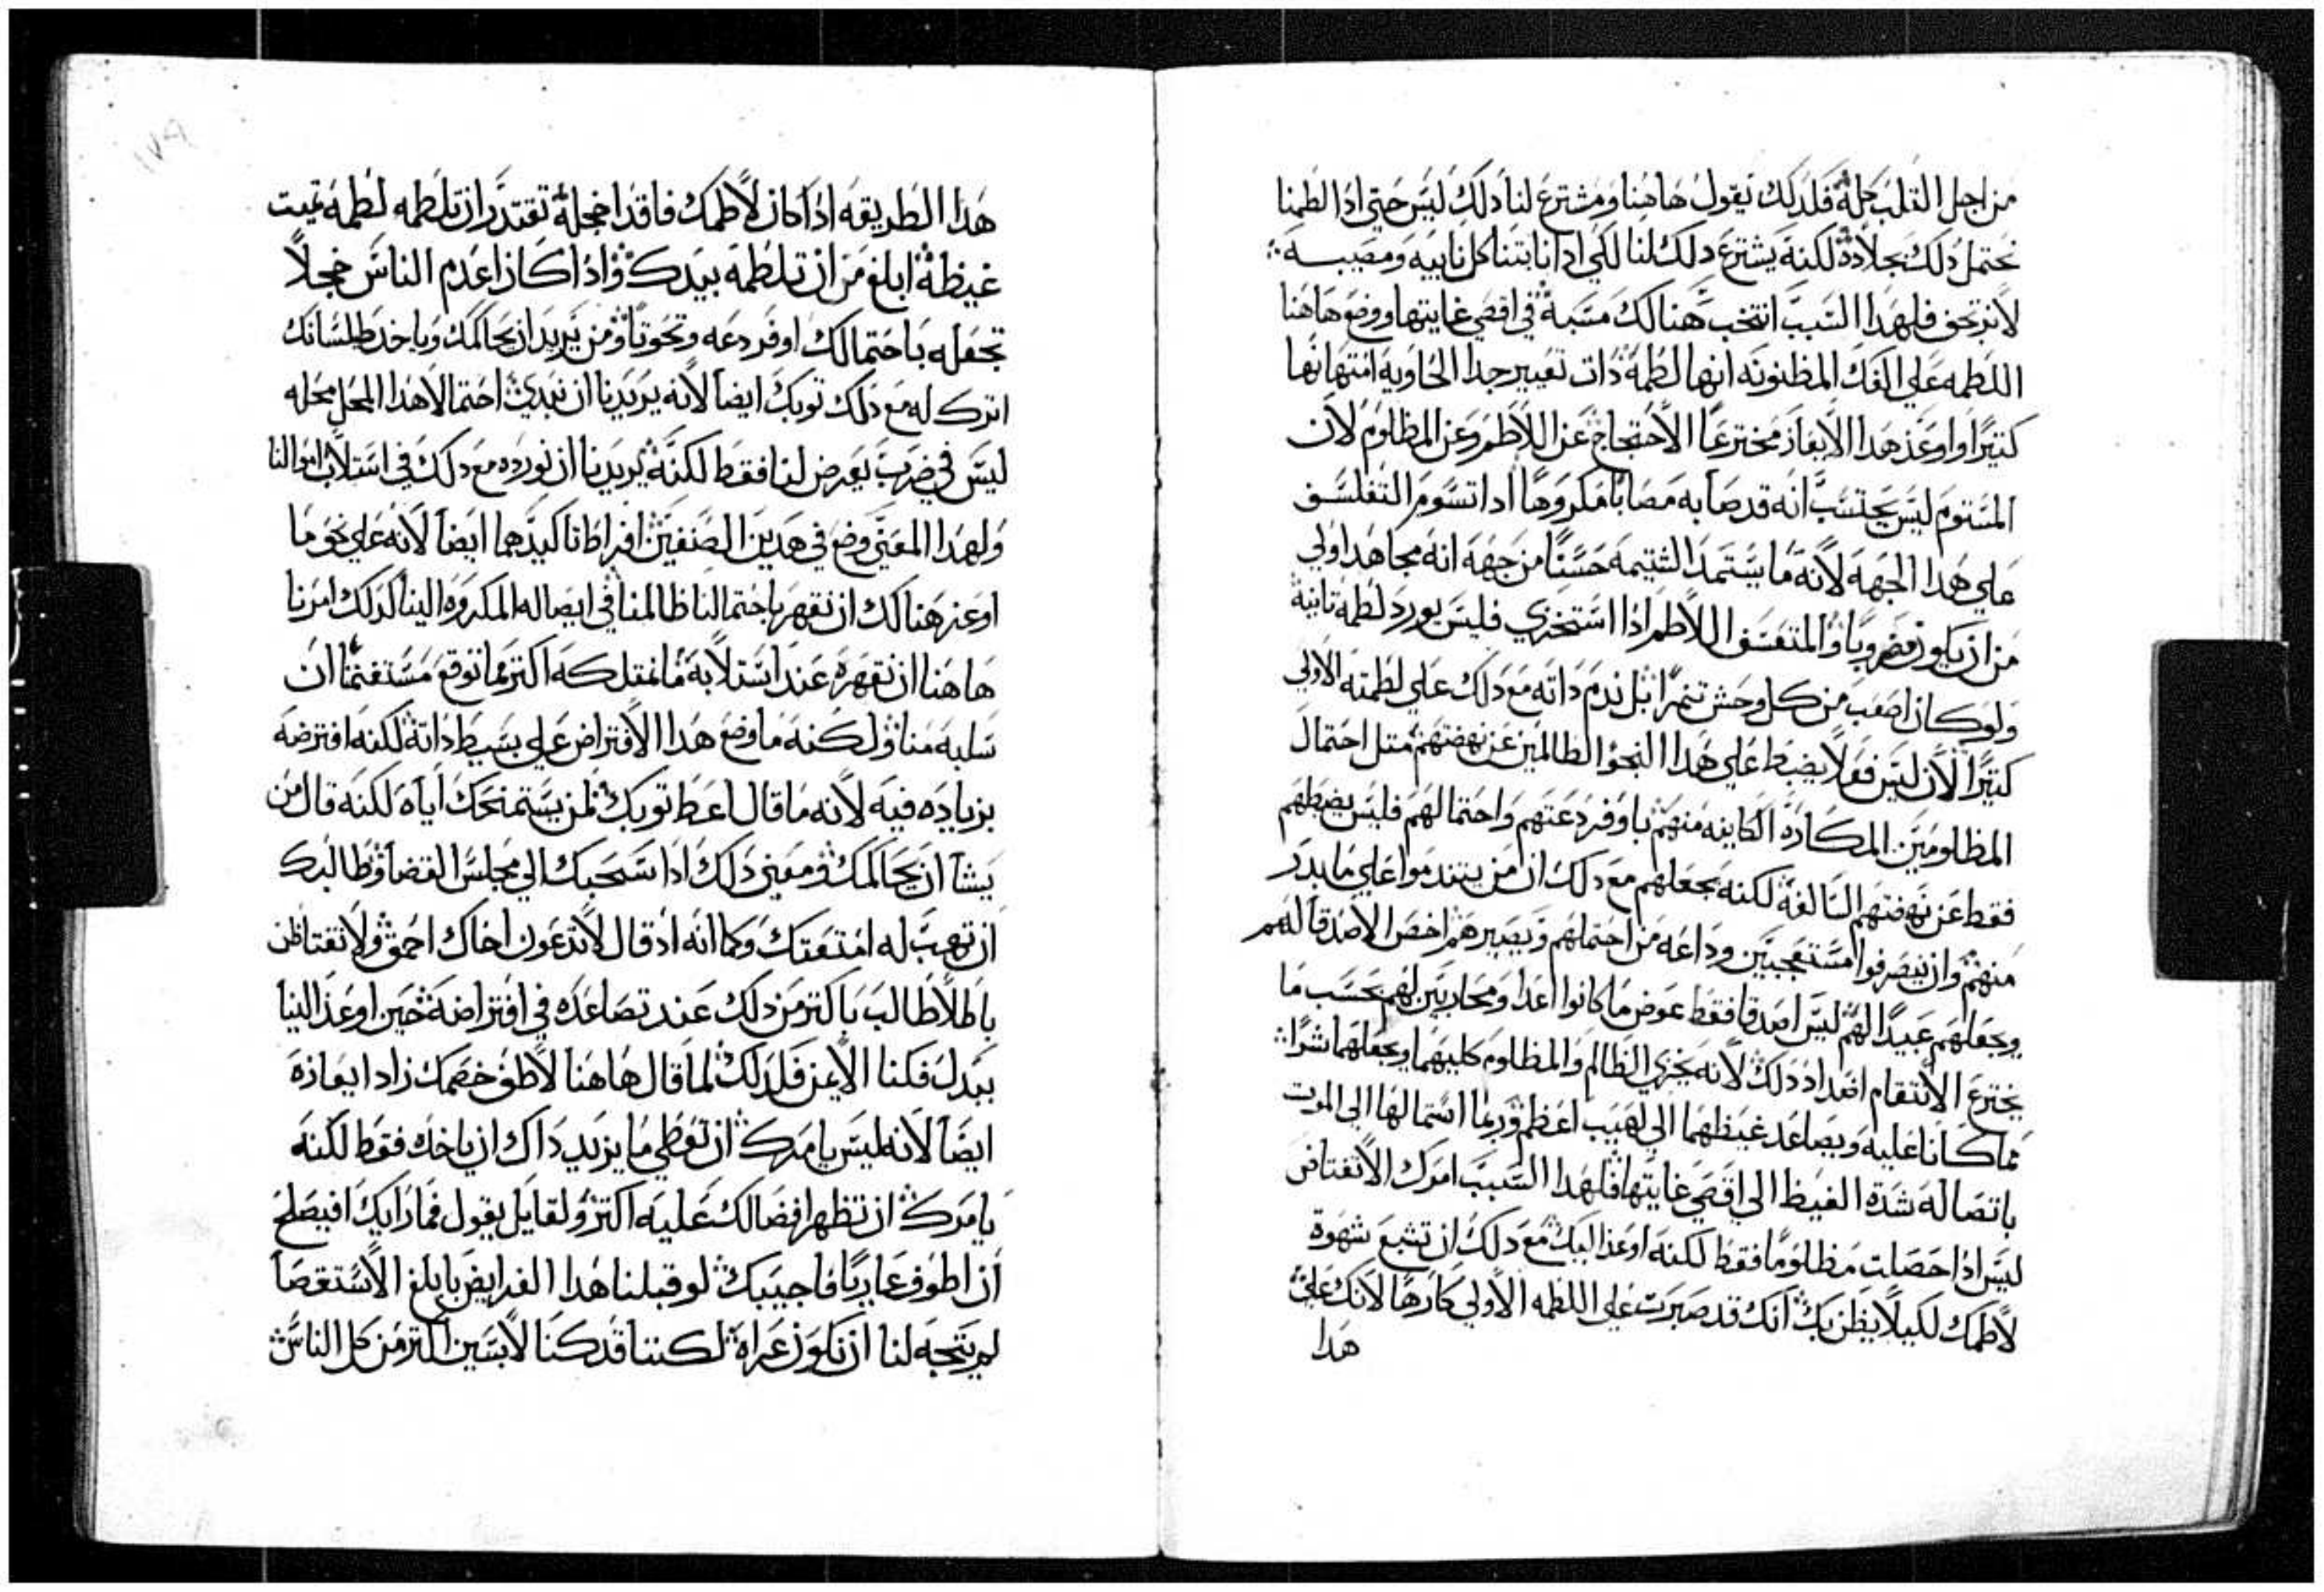 من اجل الثلب جملةً فلذلك يقول هاهنا ومشترع لنا ذلك ليس حتي اذا لطمنا
نحتمل ذلك بجلادةٍ لكنه يشترع ذلك لنا لكي اذا نابتنا كل نايبه ومصيبـــه
لا نرتجف فلهذا السبب انتخب هنالك مسبةً في اقصي غايتها ووضع هاهنا
اللطمه علي الفك المظنونه انها لطمة ذات تعيير جدا الحاويه امتهانها
كتيرًا واوعز هذا الايعاز مخترعًا الاحتجاج عن اللاطم وعن المظلوم لان
المشتوم ليس يحتسب انه قد صابه مصابًا مكروهًا اذا تسوم التفلسف
علي هذا الجهه لانه ما يستمد الشتيمه حسنًا من جهه انه مجاهد اولي
من ان يكون مضروبًا والمتعسف اللاطم اذا استخزي فليس يورد لطمه تانيه
ولو كان اصعب من كل وحش تنمرًا بل ندم داته مع دلك علي لطمته الاولي
كتيرًا لان ليس فعلا يضبط علي هذا النحو الظالمين عن نهضتهم متل احتمال
المظلومين المكاره الكاينه منهم باوفر دعتهم واحتمالهم فليس يضبطهم
فقط عن نهضتهم السالفة لكنه يجعلهم مع دلك ان من يتندموا علي ما بدر
منهم وان ينصرفوا مستعجبين وداعه من احتملهم ويصيرهم اخص الاصدقا لهم
ويجعلهم عبيدًا لهم ليس اصدقا فقط عوض ما كانوا اعدا ومحاربين لهم بحسب ما
يخترع الانتقام اضداد دلك لانه يخزي الظالم والمظلوم كليهما ويجعلهما شرًا
مما كانا عليه ويصاعد غيظهما الي لهيب اعظم وربما استمالها الي الموت
باتصاله شدة الغيظ الي اقصي غايتها فلهدا السبب امرك الا تغتاض
ليس اذا حصلت مظلومًا فقط لكنه اوعز اليك مع دلك ان تشبع شهوة
لاطمك لكيلا يظن بك انك قد صبرت علي اللطمه الاولي كارهًا لانك علي
هدا
هذا الطريقه اذا كان لاطمك فاقدا خجلة تقتدر ان تلطمه لطمه تميت
غيظة ابلغ من ان تلطمه بيدك واذا كان اعدم الناس خجلاً
تجعله باحتمالك اوفر دعه وتحوتاً ومن يريد ان يحاكمك وياخد طلسانك
اترك له مع دلك توبك ايضا لانه يريدنا ان نبدي احتمالا هذا المحل محله
ليس في ضرب يعرض لنا فقط لكنه يريدنا ان نورده مع دلك في استلاب اموالنا
ولهدا المعني وضع في هدين الصنفين افراطا تاكيدهما ايضا لانه علي نحو ما
اوعز هنالك ان نقهر باحتمالنا ظالمنا في ايصاله المكروه الينا كدلك امرنا
هاهنا ان نقهره عند استلابه ما نمتلكه اكتر مما توقع مستغنمًا ان
سلبه منا ولكنه ما وضع هذا الافتراض علي بسيط داته لكنه افترضه
بزياده فيه لانه ما قال اعط توبك لمن يستمنحك اياه لكنه قال من
يشا ان يحاكمك ومعني دلك اذا سحبك الي مجلس القضا وطالبك
ان تهب له امتعتك وكما انه اذ قال لا تدعون اخاك احمق ولا تغتاظن
باطلاً طالب باكتر من دلك عند تصاعده في افتراضه حين اوعز الينا
ببدل فكنا الايمن فلدلك لما قال هاهنا لاطف خصمك زاد ايعازه
ايضًا لانه ليس يامرك ان تعطي ما يريد داك ان ياخده فقط لكنه
يامرك ان تظهر افضالك عليه اكتر ولقايل يقول فما رايك افيصلح
ان اطوف عاريًا فاجيبك لو قبلنا هذا الفرايض بابلغ الاستقصا
لم يتجه لنا ان نكون عراه لكننا قد كنا لابسين اكتر من كل الناس